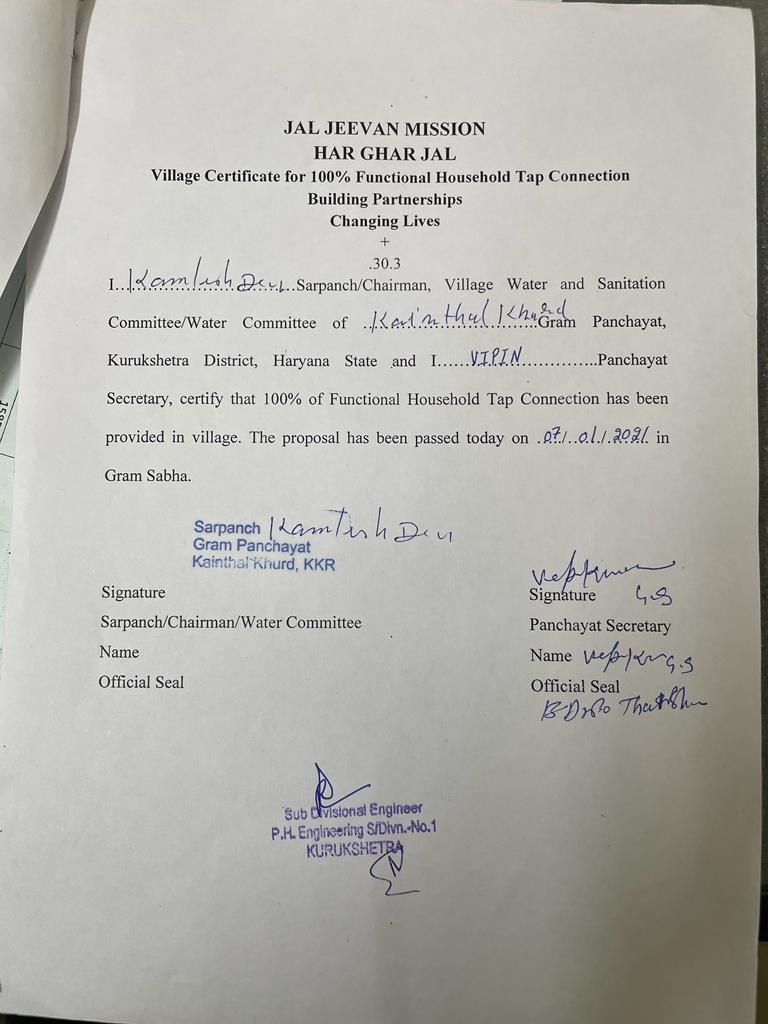 JAL JEEVAN MISSION
HAR GHAR JAL
Village Certificate for 100% Functional Household Tap Connection
Building Partnerships
Changing Lives
+
.30.3
I...Kamlesh Devi...Sarpanch/Chairman, Village Water and Sanitation
Committee/Water Committee of ..Kainthal Khurd......Gram Panchayat,
Kurukshetra District, Haryana State and I......VIPIN..............Panchayat
Secretary, certify that 100% of Functional Household Tap Connection has been
provided in village. The proposal has been passed today on .07./..01./.2021. in
Gram Sabha.
Sarpanch Kamlesh Devi
Gram Panchayat
Kainthal Khurd, KKR
Signature
Sarpanch/Chairman/Water Committee
Name
Official Seal
Signature G.S
Panchayat Secretary
Name G.S
Official Seal
Sub Divisional Engineer
P.H. Engineering S/Divn.-No.1
KURUKSHETRA